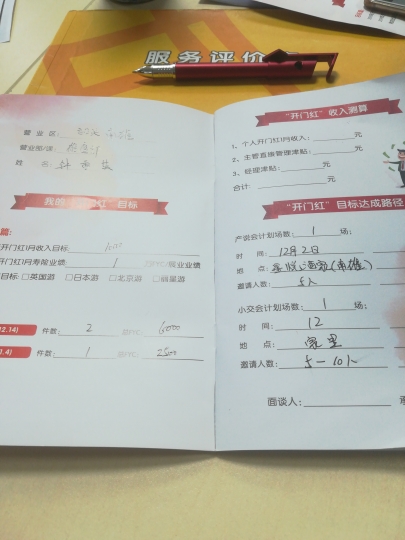 服务评价
营业区:
营业部/课:
姓名:
我的"开门红"目标
篇:
开门红1月收入目标:
开门红1月寿险业绩: 1
目标: □英国游 □日本游 □北京游 □丽星游
2.14) 件数: 2 6000
1.4) 件数: 1 2500
"开门红"收入测算
1、个人开门红1月收入: 元
2、主管直接管理津贴: 元
3、经理津贴: 元
合计: 元
"开门红"目标达成路径
产说会计划场数: 1 场;
时间: 12月2日
地点: (南雄)
邀请人数: 5人
小交会计划场数: 1 场;
时间: 12
地点: 家里
邀请人数: 5-10人
面谈人: